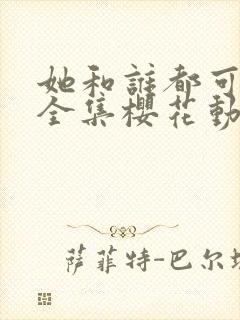 她和誰都可
全集櫻花動
萨菲特-巴尔